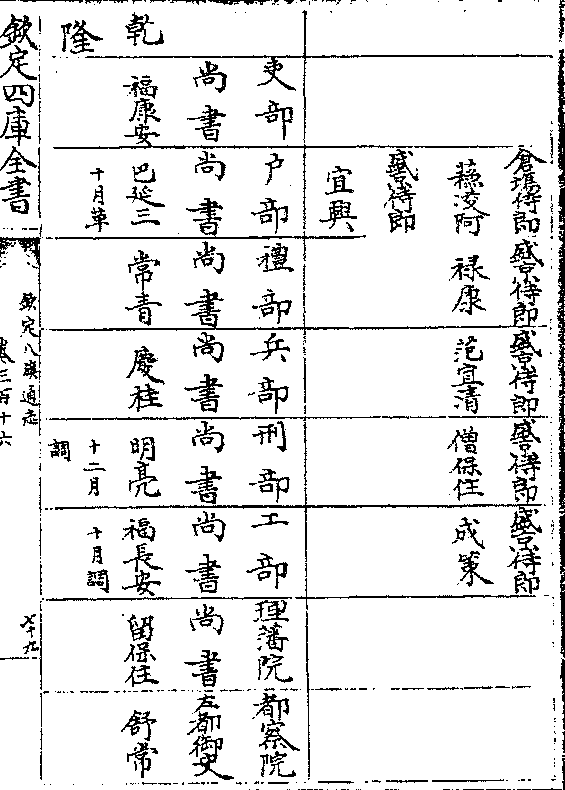 倉場侍郎
蘇淩阿
盛京侍郎
宜興
盛京侍郎
禄康
盛京侍郎
范宜清
盛京侍郎
僧保住
盛京侍郎
成策
乾
隆
吏部
尚書
福康安
户部
尚書
巴延三
十月革
禮部
尚書
常青
兵部
尚書
慶桂
刑部
尚書
明亮
十二月
調
工部
尚書
福長安
十月調
理藩院
尚書
留保住
都察院
左都御史
舒常
欽定四庫全書
欽定八旗通志
卷三百十六
七十九